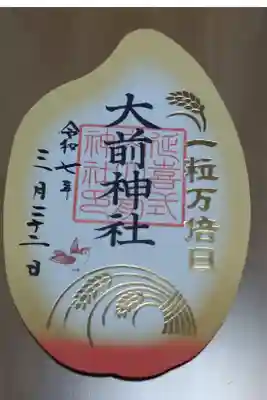 一粒万倍日
延喜式
神社
大前神社
令和七年
三月二十二日